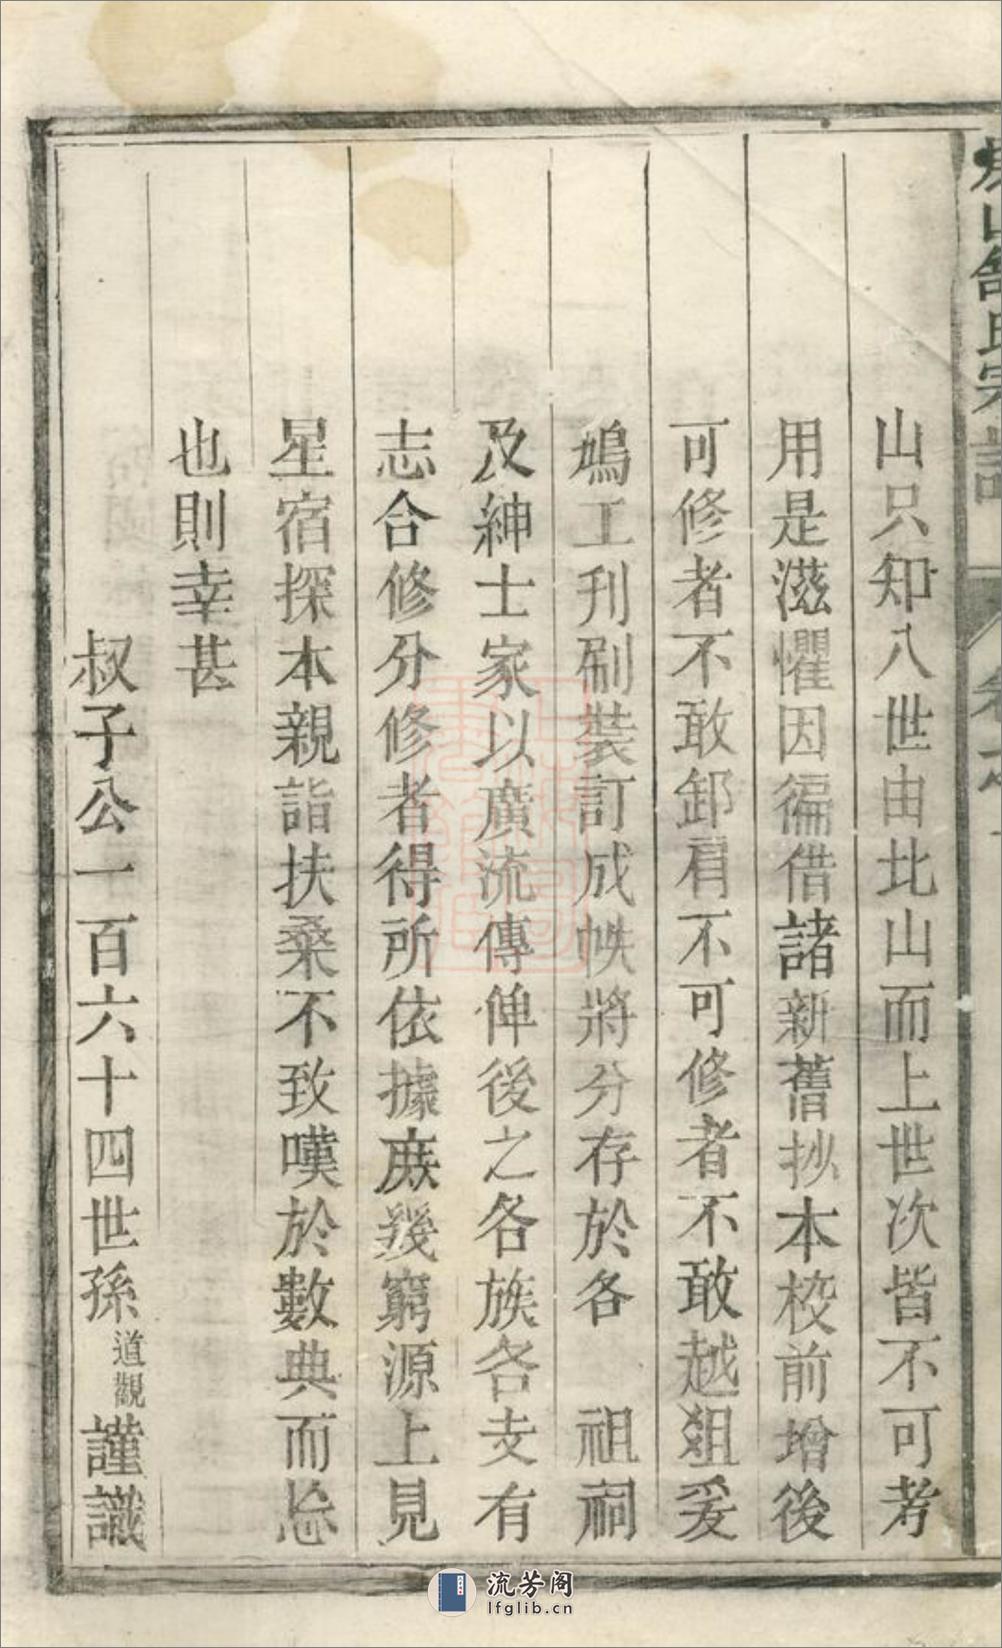 山只知入世由北山而上世次皆不可考
用是滋懼因徧借諸新舊抄本校前增後
可修者不敢卸肩不可修者不敢越俎爰
鳩工刋刷裝訂成帙將分存於各　祖祠
及紳士家以廣流傳俾後之各族各支有
志合修分修者得所依據庶幾窮源上見
星宿探本親詣扶桑不致嘆於數典而忘
也則幸甚
叔子公一百六十四世孫道觀謹識
氏宗譜
流芳阁
lfglib.cn